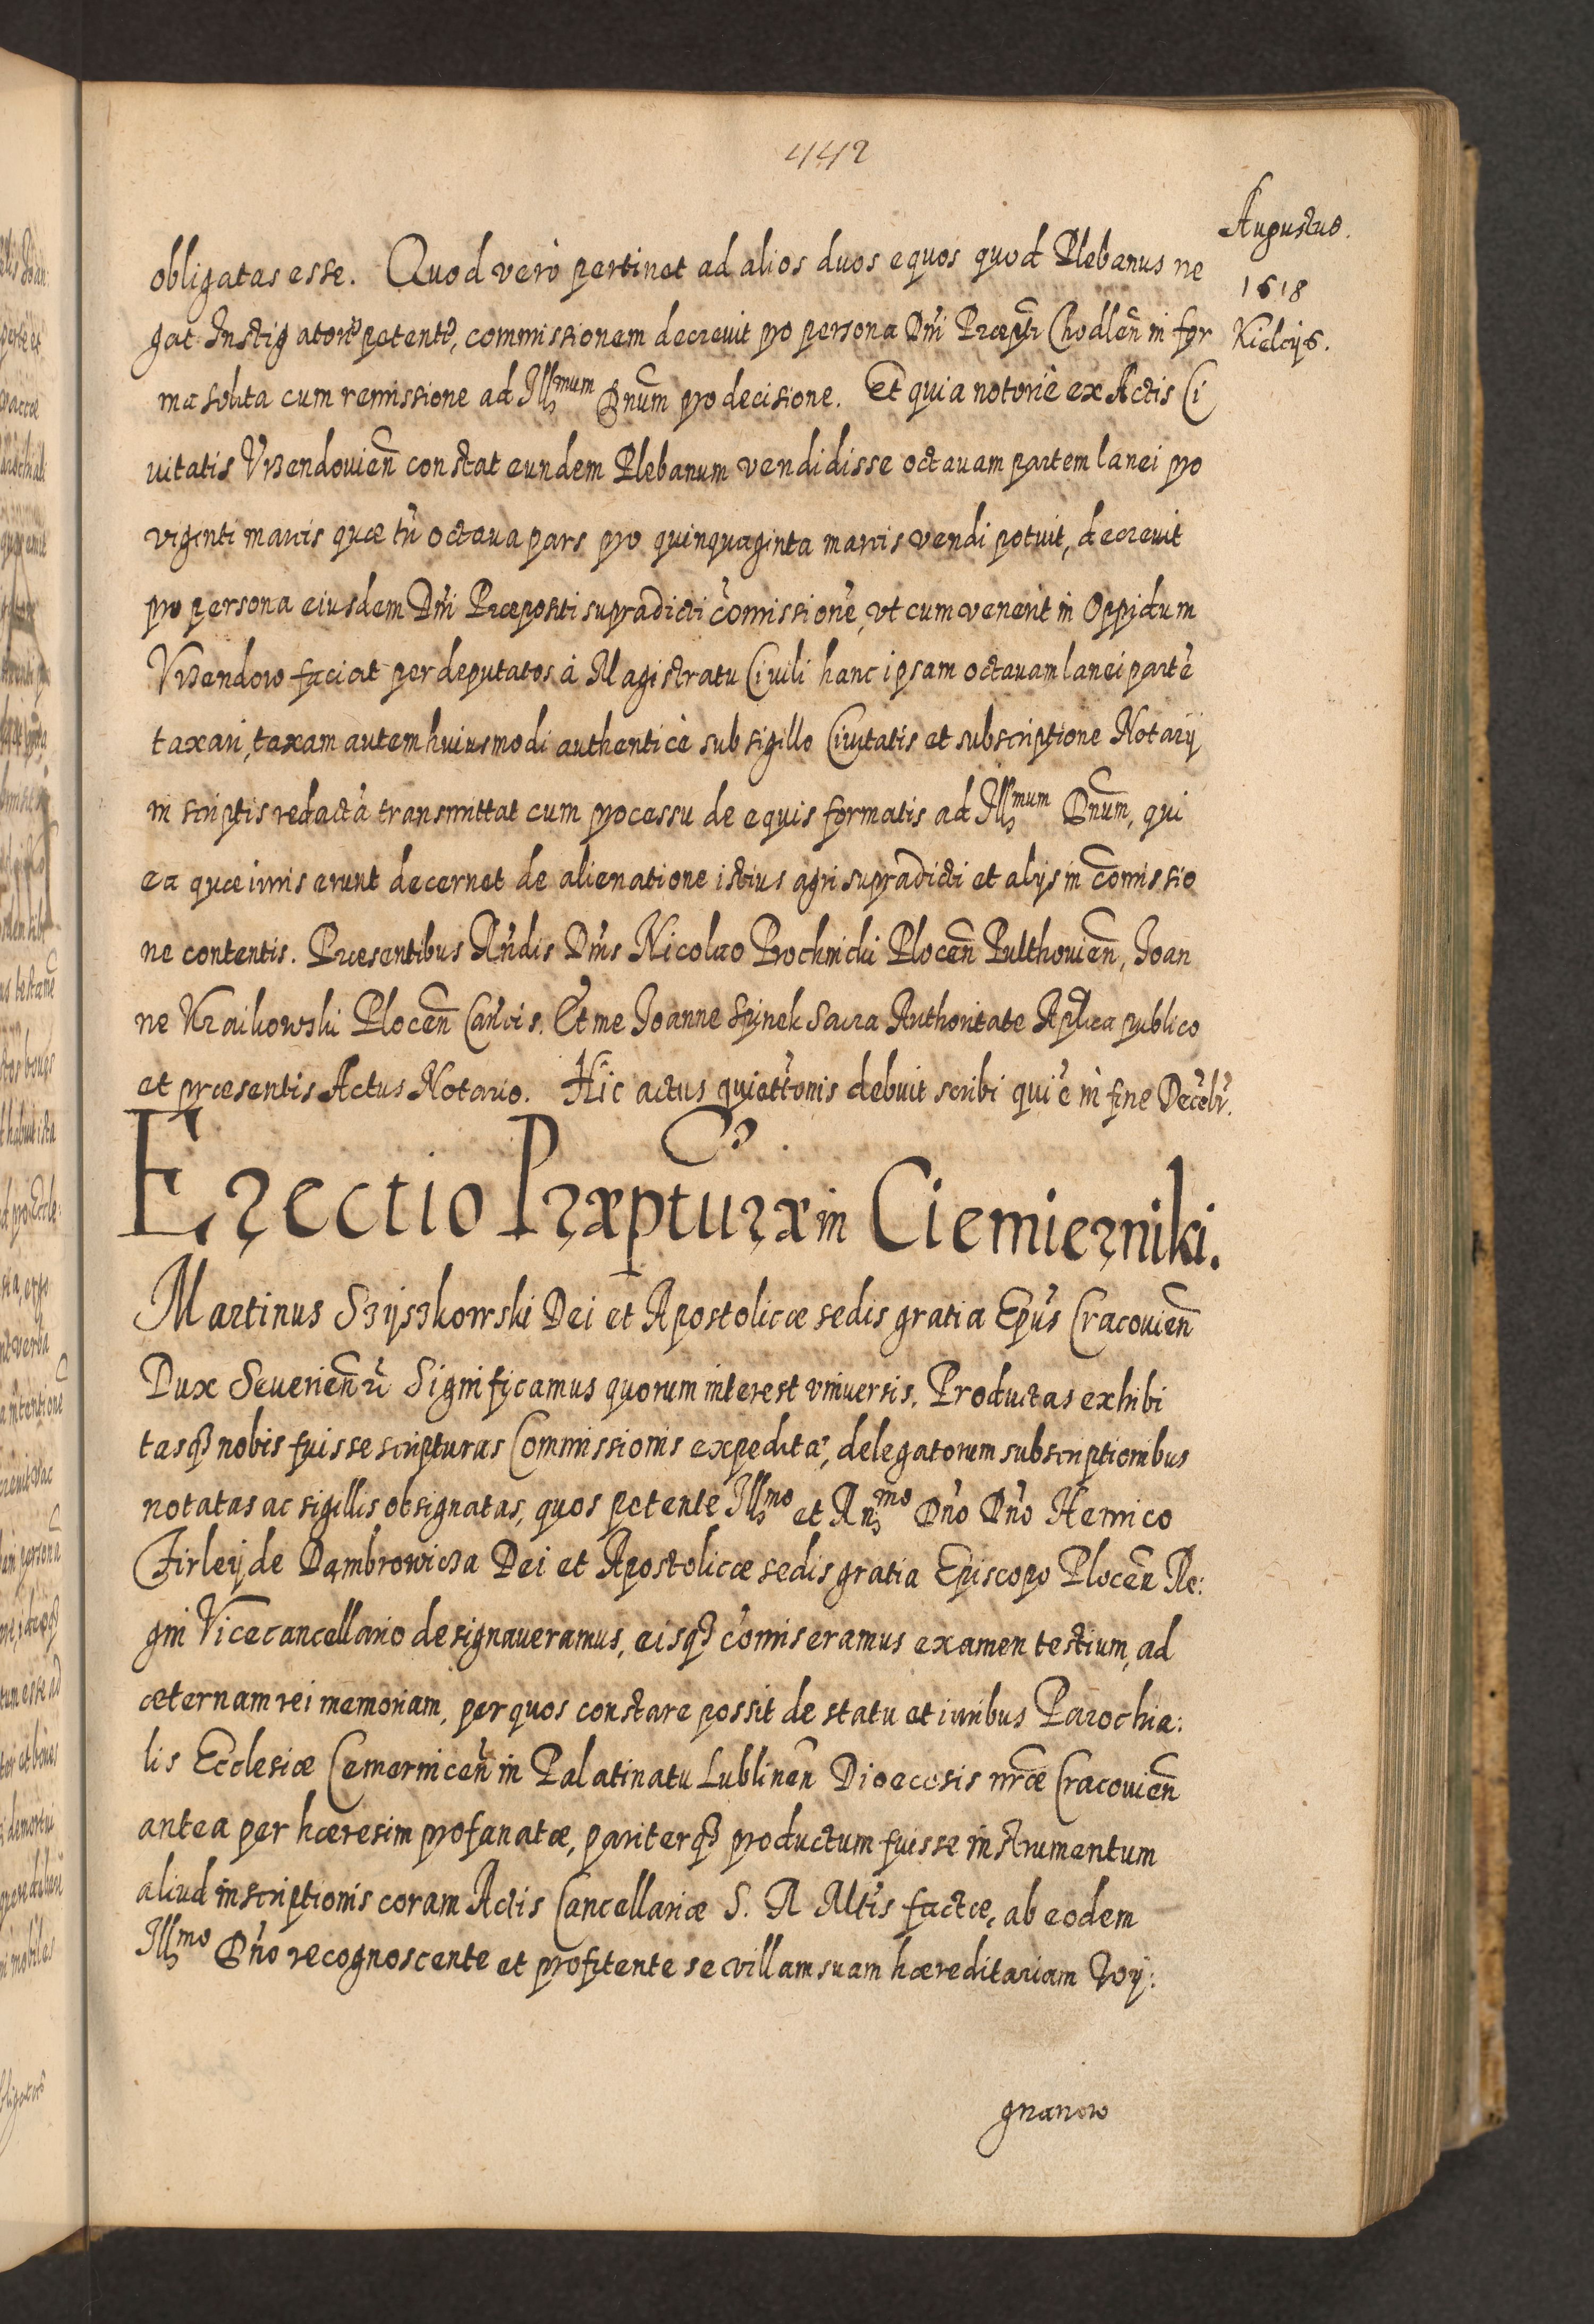 442
Augustus.
1618
Kielcijs.
obligatas esse. Quod verò pertinet ad alios duos equos quod Plebanus ne
gat Instigatori petenti, commissionem decrevit pro persona Dni Præpti Chodlen in for
ma solita cum remissione ad Illmum Dnum pro decisione. Et quia notoriè ex Actis Ci
uitatis Vrzendouien constat eundem Plebanum vendidisse octauam partem lanei pro
viginti marcis quæ tn octaua pars pro quinquaginta marcis vendi potuit, decreuit
pro persona eiusdem Dni Præpositi supradicti comissione, vt cum venerit in Oppidum
Vrzendow faciat per deputatos à Magistratu Ciuili hanc ipsam octauam lanei parte
taxari, taxam autem huiusmodi authenticè sub sigillo Ciuitatis et subscriptione Notarij
in scriptis redactà transmittat cum processu de equis formatis ad Illmum Dnum, qui
ea quæ iuris erunt decernet de alienatione istius agri supradicti et alijs in comissio
ne contentis. Præsentibus Rndis Dnis Nicolao Prochnicki Plocen Pulthouien, Joan
ne Kraikowski Plocen Cancis. Et me Joanne Spinek Sacra Authoritate Aplica publico
et præsentis Actus Notario. Hic actus quietionis debuit scribi qui e in fine Decebr.
Erectio Præpturæ in Ciemierniki.
Martinus Szyszkowski Dei et Apostolicæ sedis gratia Epus Cracouien
Dux Seuerien Significamus quorum interest vniuersis. Productas exhibi
tasq3 nobis fuisse scripturas Commissionis expedita, delegatorum subscriptionibus
notatas ac sigillis obsignatas, quos petente Illmo et Rnmo Dno Dno Henrico
Firleij de Dambrowicza Dei et Apostolicæ sedis gratia Episcopo Plocen Re:
gni Vicecancellario designaueramus, eisq3 comiseramus examen testium, ad
æternam rei memoriam, per quos constare possit de statu et iuribus Parochia:
lis Ecclesiæ Cemernicen in Palatinatu Lublinen Dioecesis nræ Cracouien
antea per hæresim profanatæ, pariterq3 productum fuisse instrumentum
aliud inscriptionis coram Actis Cancellariæ S. R Mtis factæ, ab eodem
Illmo Dno recognoscente et profitente se villam suam hæreditariam Woy:
gnanow